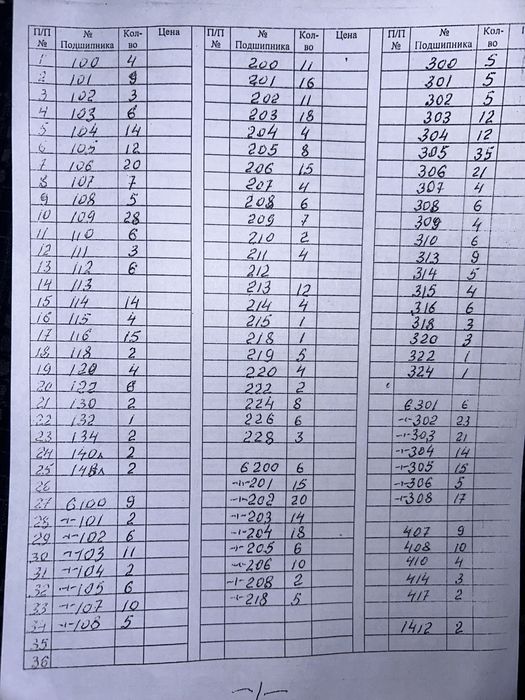 П/П № № Подшипника Кол-во Цена № Подшипника Кол-во Цена П/П № № Подшипника Кол-во
1 100 4 200 11 300 5
2 101 9 201 16 301 5
3 102 3 202 11 302 5
4 103 6 203 18 303 12
5 104 14 204 4 304 12
6 105 12 205 8 305 35
7 106 20 206 15 306 21
8 107 7 207 4 307 4
9 108 5 208 6 308 6
10 109 28 209 7 309 4
11 110 6 210 2 310 6
12 111 3 211 4 313 9
13 112 6 212 314 5
14 113 213 12 315 4
15 114 14 214 4 316 6
16 115 4 215 1 318 3
17 116 15 218 1 320 3
18 118 2 219 5 322 1
19 120 4 220 4 324 1
20 122 6 222 2
21 130 2 224 8 6301 6
22 132 1 226 6 -"-302 23
23 134 2 228 3 -"-303 21
24 140л 2 -"-304 14
25 148л 2 6200 6 -"-305 15
26 -"-201 15 -"-306 5
27 6100 9 -"-202 20 -"-308 17
28 -"-101 2 -"-203 14
29 -"-102 6 -"-204 18 407 9
30 -"-103 11 -"-205 6 408 10
31 -"-104 2 -"-206 10 410 4
32 -"-105 6 -"-208 2 414 3
33 -"-107 10 -"-218 5 417 2
34 -"-108 5 1412 2
35
36
-/-